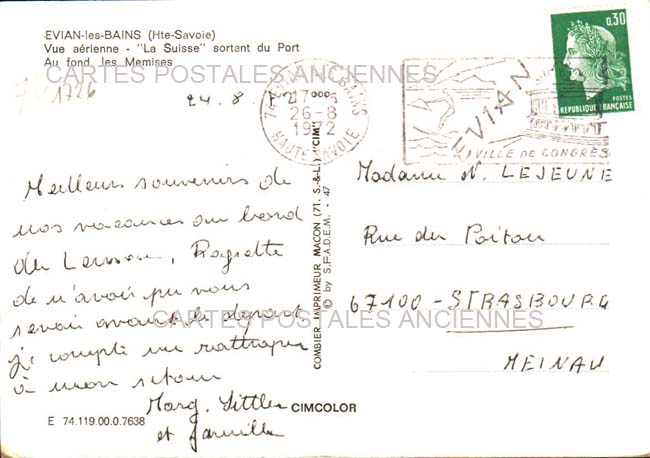 EVIAN-les-BAINS (Hte-Savoie)
Vue aérienne - "La Suisse" sortant du Port
Au fond les Memises
CARTES POSTALES ANCIENNES
1726
24.8.72
74 EVIAN-LES-BAINS
17H
26-8
1972
HAUTE-SAVOIE
EVIAN
VILLE DE CONGRÈS
0,30
POSTES
REPUBLIQUE FRANÇAISE
Meilleurs souvenirs de
nos vacances au bord
du Leman, Regrette
de n'avoir pu vous
revoir avant le départ
je compte me rattraper
à mon retour
Marg. Littler
et famille
Madame N. LEJEUNE
Rue du Poitou
67100 - STRASBOURG
MEINAU
CARTES POSTALES ANCIENNES
COMBIER IMPRIMEUR MACON (71. S.-&-L.) "CIM"
© by S.P.A.D.E.M. - 47
CIMCOLOR
E 74.119.00.0.7638